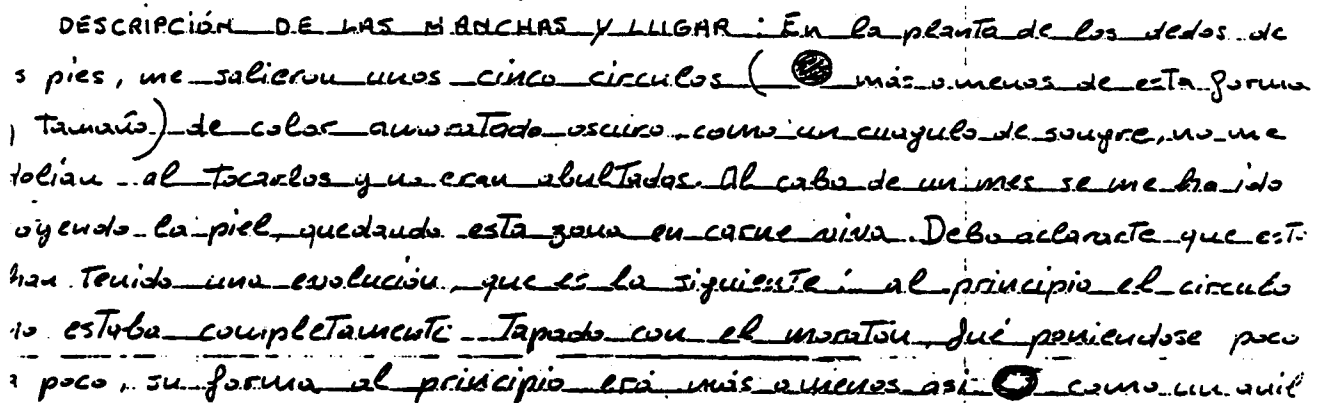 DESCRIPCIÓN DE LAS MANCHAS Y LUGAR: En la planta de los dedos de
s pies, me salieron unos cinco circulos ( más o menos de esta forma
y tamaño) de color amoratado oscuro como un cuagulo de sangre, no me
dolian al tocarlos y no eran abultados. Al cabo de un mes se me ha ido
oyendo la piel, quedando esta zona en carne viva. Debo aclararte que est
han tenido una evolución, que es la siguiente: al principio el circulo
no estaba completamente tapado con el moratón, fué poniendose poco
a poco, su forma al principio era más o menos asi como un anil